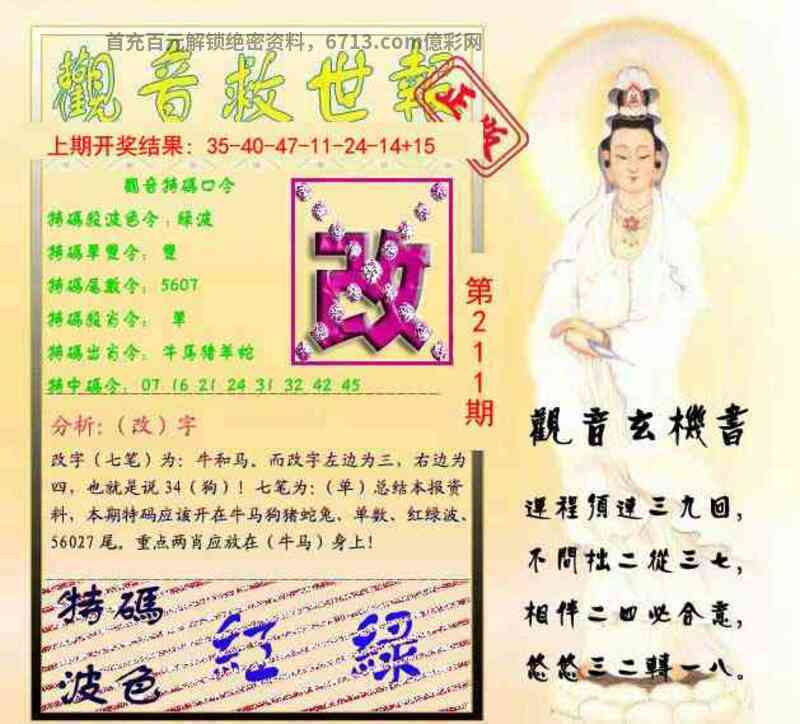 首充百元解锁绝密资料，6713.com億彩网
觀音救世報
正版
上期开奖结果：35-40-47-11-24-14+15
觀音特碼口令
特碼殺波色令：綠波
特碼單雙令：雙
特碼尾數令：5607
特碼殺肖令： 單
特碼出肖令：牛馬猪羊蛇
特中碼令：07 16 21 24 31 32 42 45
改
第211期
分析:（改）字
改字（七笔）为：牛和马。而改字左边为三，右边为
四，也就是说34（狗）！七笔为：（单）总结本报资
料，本期特码应该开在牛马狗猪蛇兔、单数、红绿波、
56027尾。重点两肖应放在（牛马）身上！
特碼
波色
紅 綠
觀音玄機書
運程須達三九回，
不問拙二從三七，
相伴二四必合意，
悠悠三二轉一八。